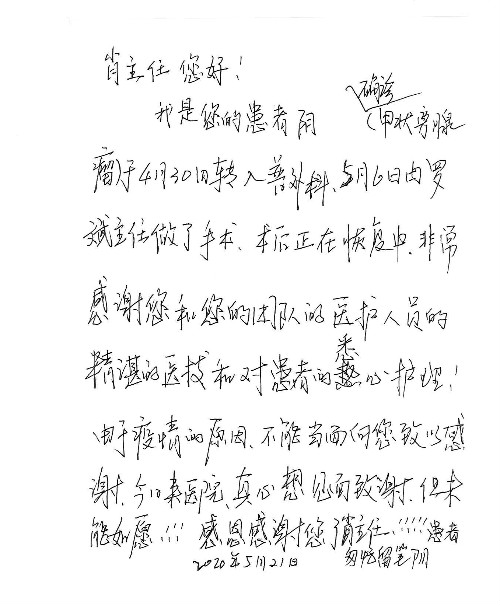 肖主任您好!
确诊
我是您的患者阴 (甲状旁腺
瘤)于4月30日转入普外科、5月6日由罗
斌主任做了手术、术后正在恢复中、非常
感谢您和您的团队的医护人员的
精湛的医技和对患者的悉心护理!
由于疫情的原因、不能当面向您致以感
谢、今日来医院、真心想见面致谢、但未
能如愿!!! 感恩感谢您了肖主任!!!!! 患者
2020年5月21日 匆忙留笔阴